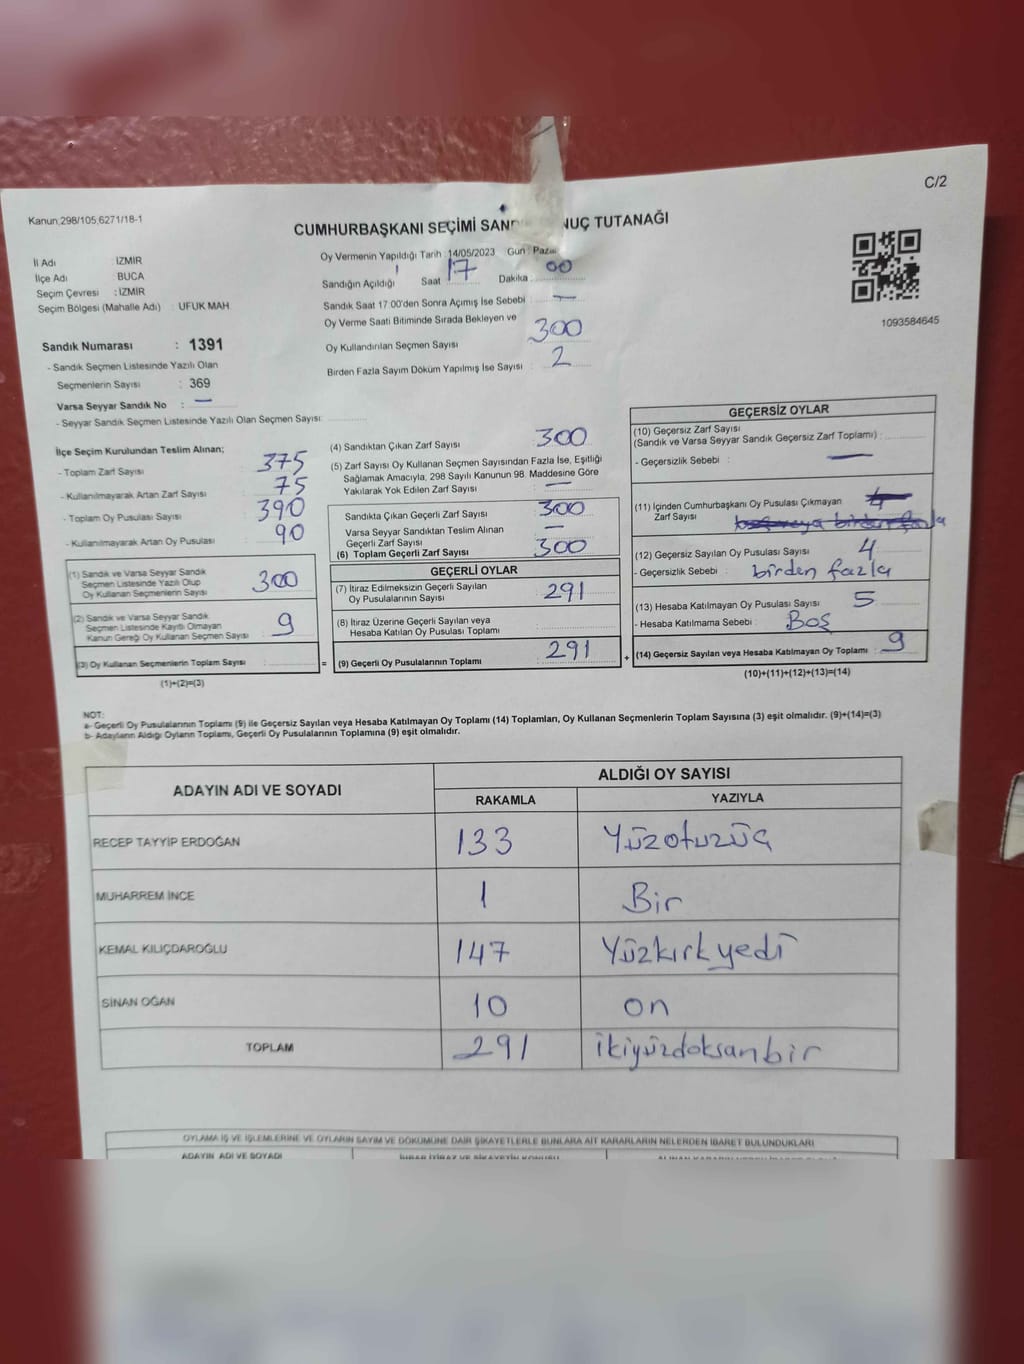 C/2
Kanun,298/105,6271/18-1
CUMHURBAŞKANI SEÇİMİ SAN NUÇ TUTANAĞI
İl Adı : İZMİR
İlçe Adı : BUCA
Seçim Çevresi : İZMİR
Seçim Bölgesi (Mahalle Adı) : UFUK MAH
Oy Vermenin Yapıldığı Tarih : 14/05/2023 Gün : Pazar
Sandığın Açıldığı Saat 17 Dakika : 00
Sandık Saat 17 00'den Sonra Açımış İse Sebebi : —
Oy Verme Saati Bitiminde Sırada Bekleyen ve
Oy Kullandırılan Seçmen Sayısı 300
Birden Fazla Sayım Döküm Yapılmış İse Sayısı : 2
1093584645
Sandık Numarası : 1391
- Sandık Seçmen Listesinde Yazılı Olan
Seçmenlerin Sayısı : 369
Varsa Seyyar Sandık No : —
- Seyyar Sandık Seçmen Listesinde Yazılı Olan Seçmen Sayısı:
İlçe Seçim Kurulundan Teslim Alınan;
- Toplam Zarf Sayısı 375
- Kullanılmayarak Artan Zarf Sayısı 75
- Toplam Oy Pusulası Sayısı 390
- Kullanılmayarak Artan Oy Pusulası 90
(1) Sandık ve Varsa Seyyar Sandık
Seçmen Listesinde Yazılı Olup
Oy Kullanan Seçmenlerin Sayısı 300
(2) Sandık ve Varsa Seyyar Sandık
Seçmen Listesinde Kayıtlı Olmayan
Kanun Gereği Oy Kullanan Seçmen Sayısı 9
(3) Oy Kullanan Seçmenlerin Toplam Sayısı :
(1)+(2)=(3)
(4) Sandıktan Çıkan Zarf Sayısı 300
(5) Zarf Sayısı Oy Kullanan Seçmen Sayısından Fazla İse, Eşitliği
Sağlamak Amacıyla, 298 Sayılı Kanunun 98. Maddesine Göre
Yakılarak Yok Edilen Zarf Sayısı : —
Sandıkta Çıkan Geçerli Zarf Sayısı 300
Varsa Seyyar Sandıktan Teslim Alınan
Geçerli Zarf Sayısı —
(6) Toplam Geçerli Zarf Sayısı 300
GEÇERLİ OYLAR
(7) İtiraz Edilmeksizin Geçerli Sayılan
Oy Pusulalarının Sayısı 291
(8) İtiraz Üzerine Geçerli Sayılan veya
Hesaba Katılan Oy Pusulası Toplamı
= (9) Geçerli Oy Pusulalarının Toplamı 291 +
GEÇERSİZ OYLAR
(10) Geçersiz Zarf Sayısı
(Sandık ve Varsa Seyyar Sandık Geçersiz Zarf Toplamı) :
- Geçersizlik Sebebi : —
(11) İçinden Cumhurbaşkanı Oy Pusulası Çıkmayan
Zarf Sayısı
(12) Geçersiz Sayılan Oy Pusulası Sayısı 4
- Geçersizlik Sebebi : birden fazla
(13) Hesaba Katılmayan Oy Pusulası Sayısı 5
- Hesaba Katılmama Sebebi : Boş
(14) Geçersiz Sayılan veya Hesaba Katılmayan Oy Toplamı : 9
(10)+(11)+(12)+(13)=(14)
NOT:
a- Geçerli Oy Pusulalarının Toplamı (9) ile Geçersiz Sayılan veya Hesaba Katılmayan Oy Toplamı (14) Toplamları, Oy Kullanan Seçmenlerin Toplam Sayısına (3) eşit olmalıdır. (9)+(14)=(3)
b- Adayların Aldığı Oyların Toplamı, Geçerli Oy Pusulalarının Toplamına (9) eşit olmalıdır.
ADAYIN ADI VE SOYADI ALDIĞI OY SAYISI
RAKAMLA YAZIYLA
RECEP TAYYİP ERDOĞAN 133 Yüzotuzüç
MUHARREM İNCE 1 Bir
KEMAL KILIÇDAROĞLU 147 Yüzkırkyedi
SİNAN OĞAN 10 on
TOPLAM 291 ikiyüzdoksanbir
OYLAMA İŞ VE İŞLEMLERİNE VE OYLARIN SAYIM VE DÖKÜMÜNE DAİR ŞİKAYETLERLE BUNLARA AİT KARARLARIN NELERDEN İBARET BULUNDUKLARI
ADAYIN ADI VE SOYADI